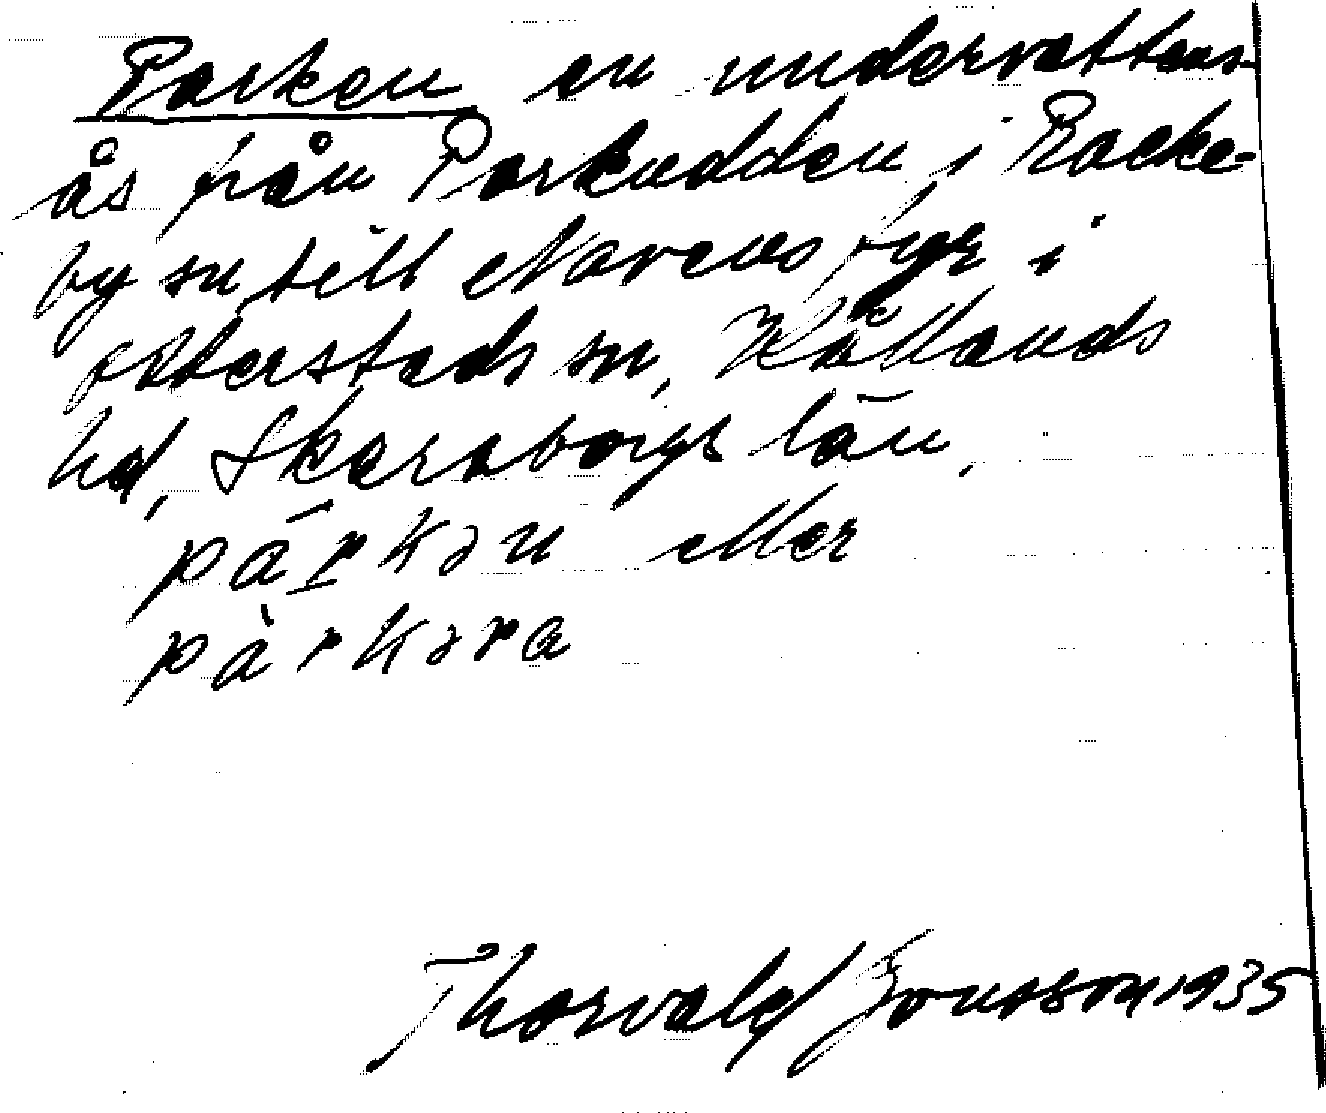 Parken en undervattens-
ås från Parkudden i Racke-
by sn till Navens fyr i
Otterstads sn, Kållands
hd, Skaraborgs län.
párkən eller
pàrkəra
Thorvald Jonsson 1935